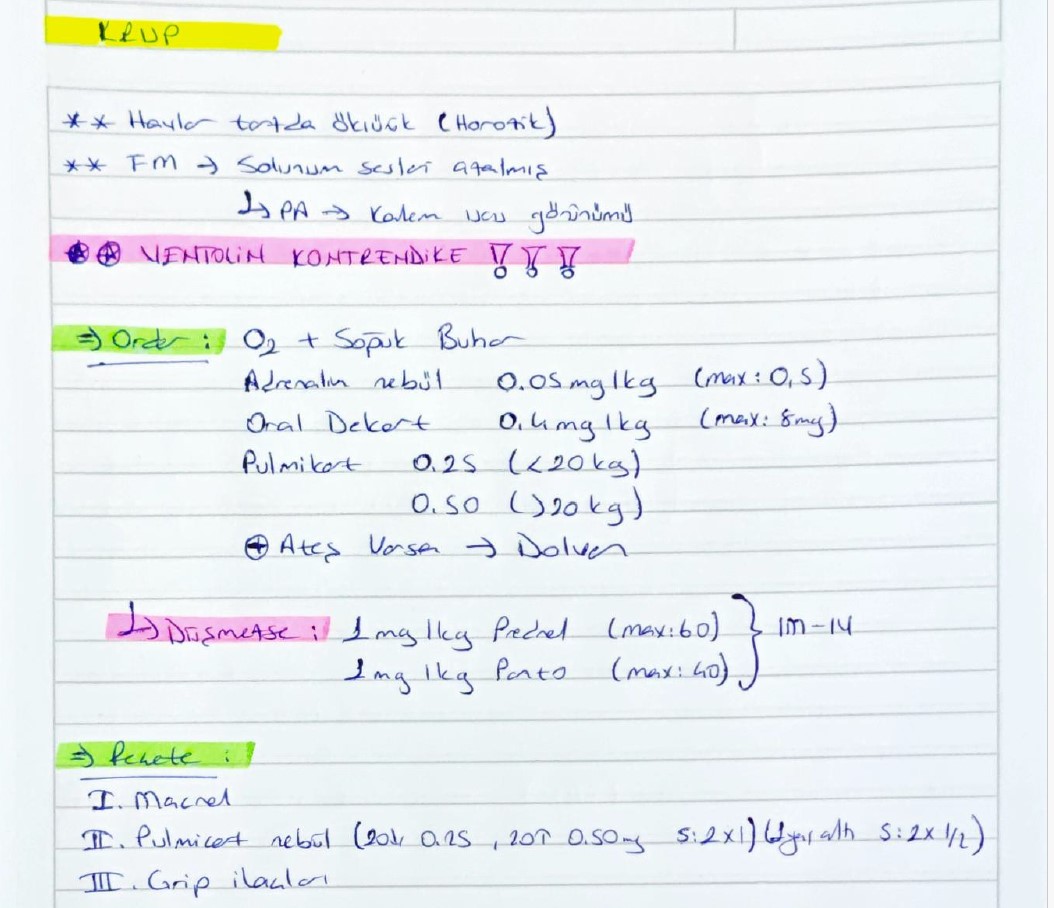 KRUP
** Havlar tarzda öksürük (Horozik)
** FM → Solunum sesleri azalmış
↳ PA → Kalem ucu görünümü
** VENTOLİN KONTRENDİKE !!!
⇒ Order : O2 + Soğuk Buhar
Adrenalin nebül 0.05 mg/kg (max: 0,5)
Oral Dekort 0.4 mg/kg (max: 8mg)
Pulmikort 0.25 (<20 kg)
0.50 (>20 kg)
⊕ Ateş Varsa → Dolven
↳ DÜŞMEZSE : 1 mg/kg Prednol (max: 60) } IM-IV
1 mg/kg Panto (max: 40)
⇒ Reçete :
I. Macrol
II. Pulmicort nebül (20↓ 0.25, 20↑ 0.50mg S: 2x1) ( yaş altı S: 2x1/2)
III. Grip ilaçları